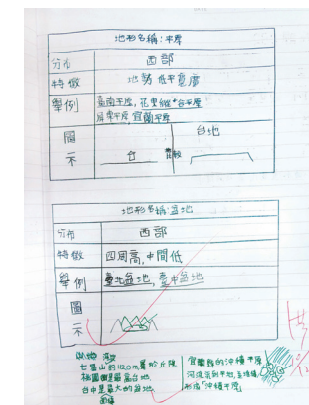 地形名稱:平原
分布 西部
特徵 地勢低平寬廣
舉例 臺南平原,花東縱谷平原
屏東平原,宜蘭平原
圖示 台地
地形名稱:盆地
分布 西部
特徵 四周高,中間低
舉例 臺北盆地,臺中盆地
圖示
七星山的1120m屬於丘陵
桃園

台中是最大的盆地
宜蘭
的沖積平原
形成「沖積平原」